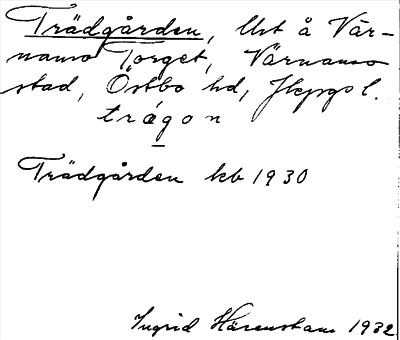 Trädgården, Ust å Vär-
namo Torget, Värnamo
stad, Östbo hd, Jkpgs l.
trágon
Trädgården kb 1930
Ingrid Härenstam 1932.